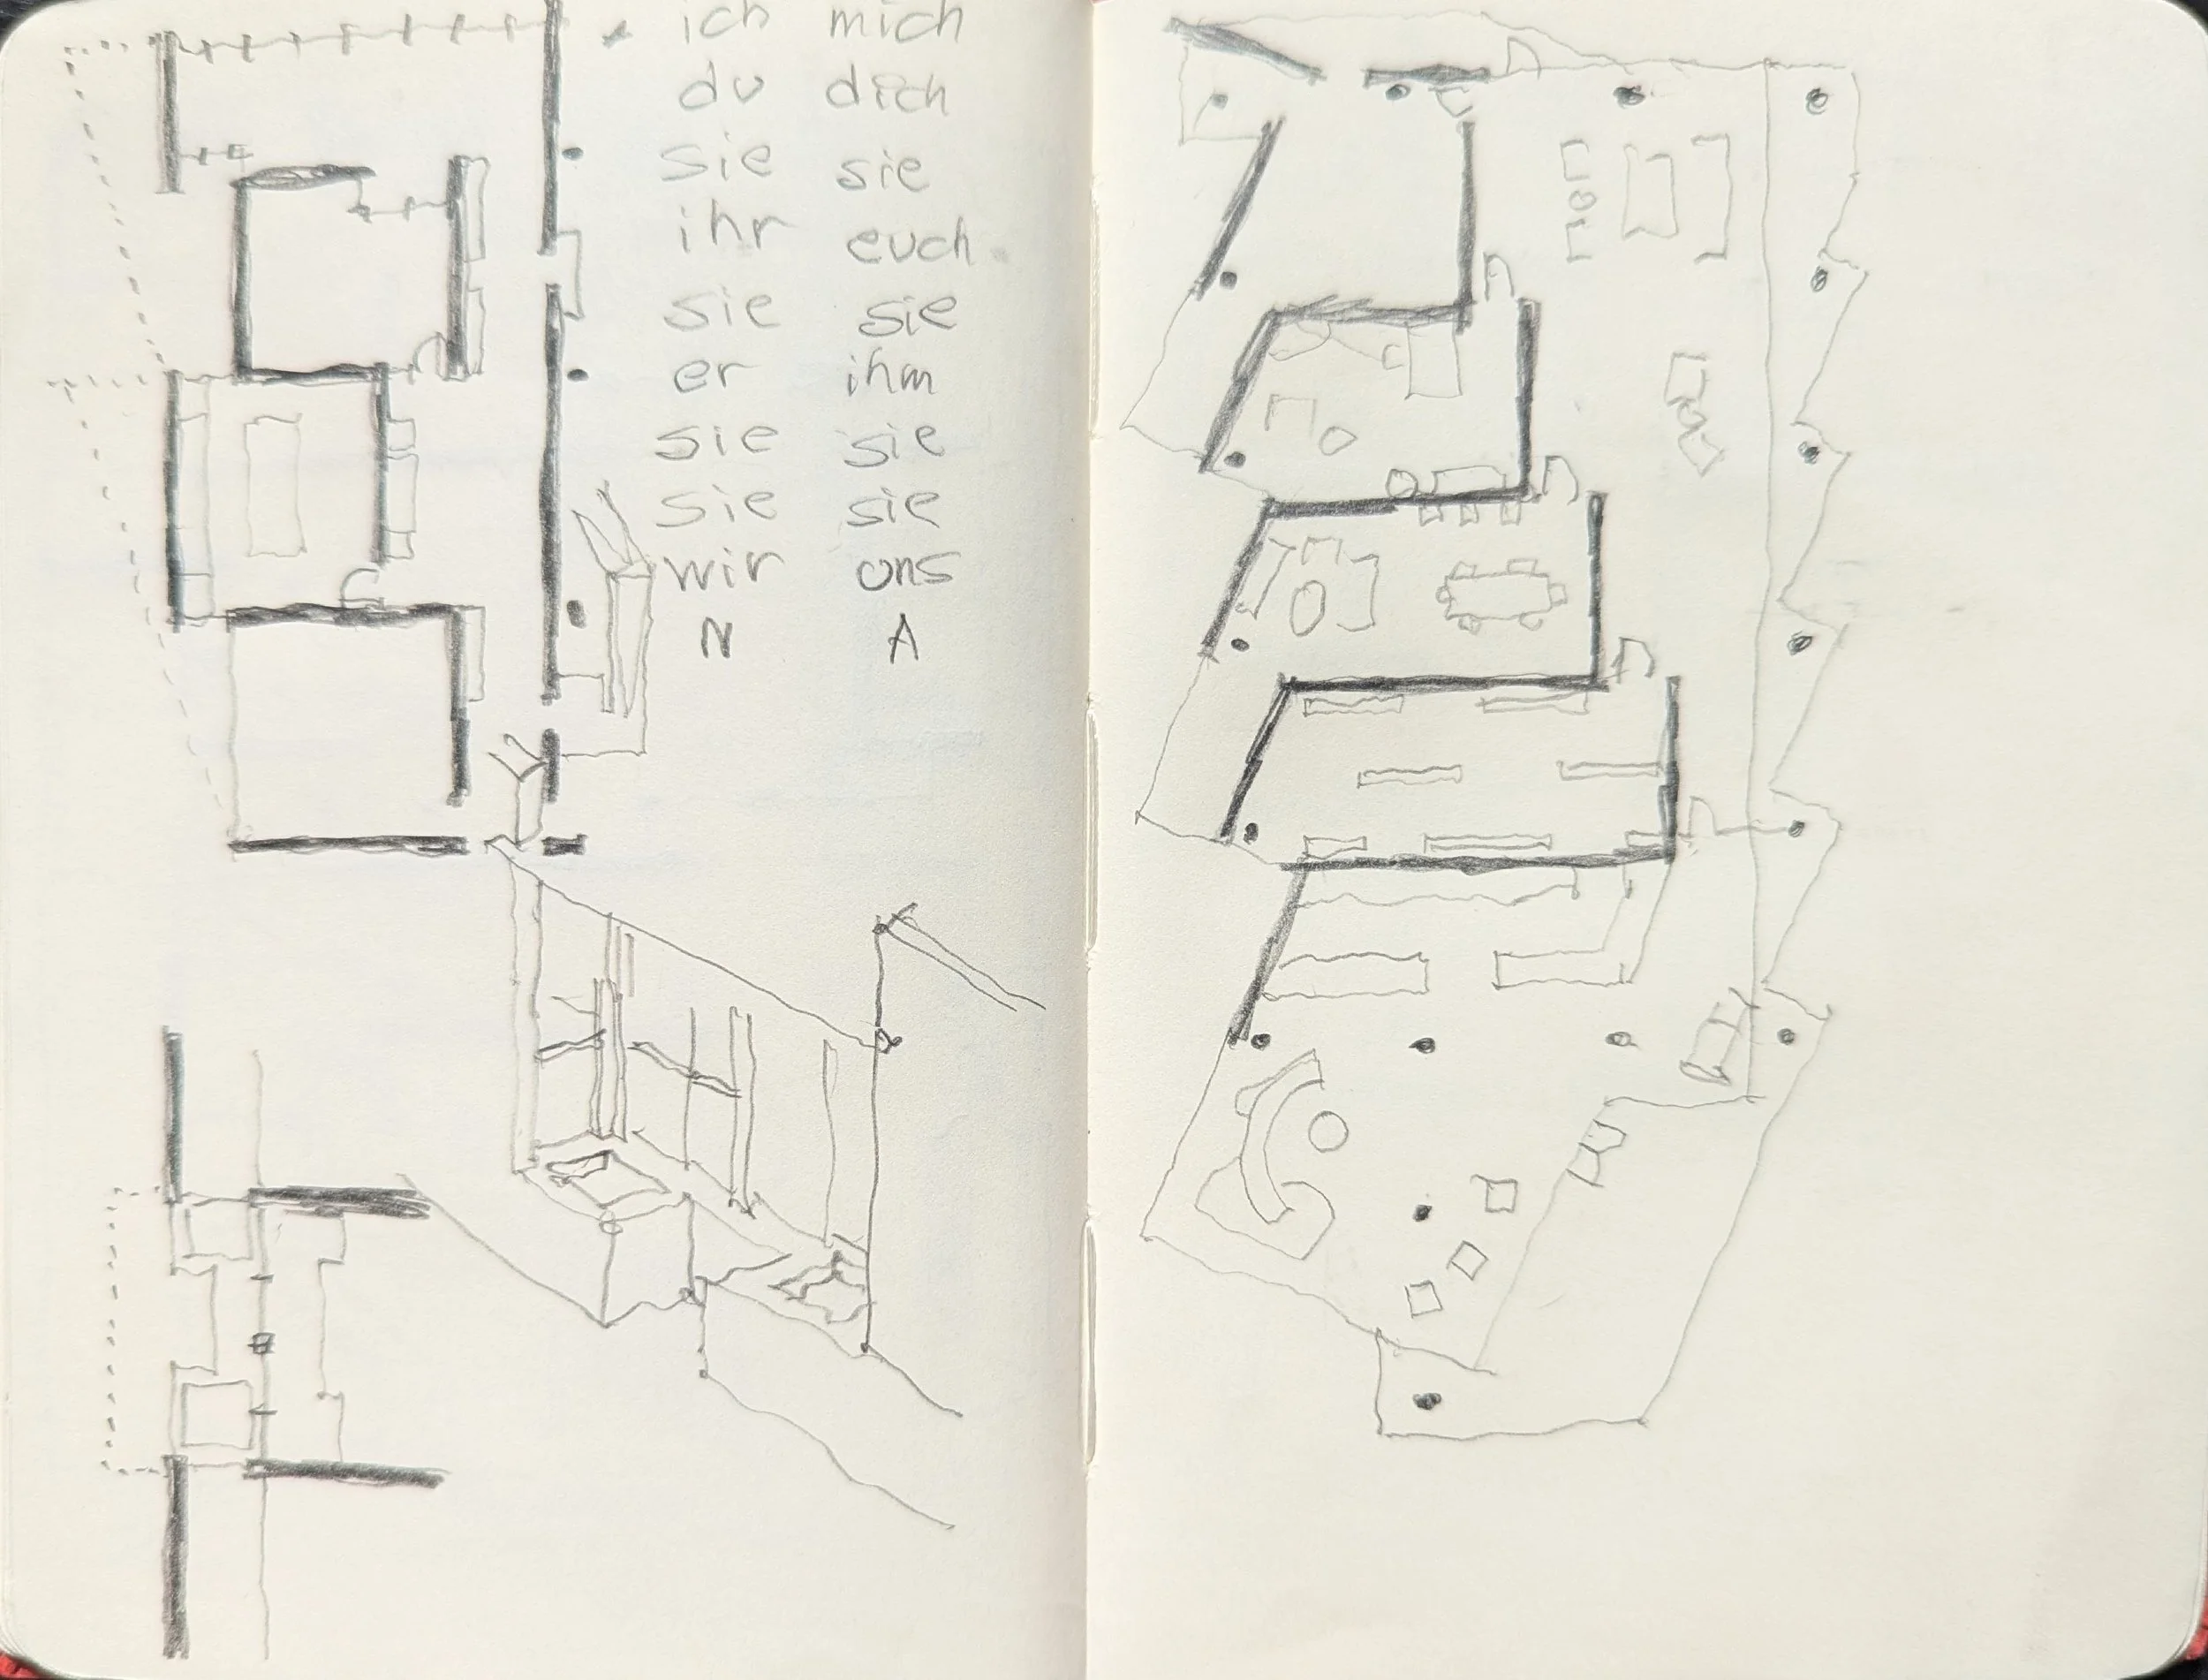 ich mich
du dich
sie sie
ihr euch
sie sie
er ihm
sie sie
sie sie
wir uns
N A